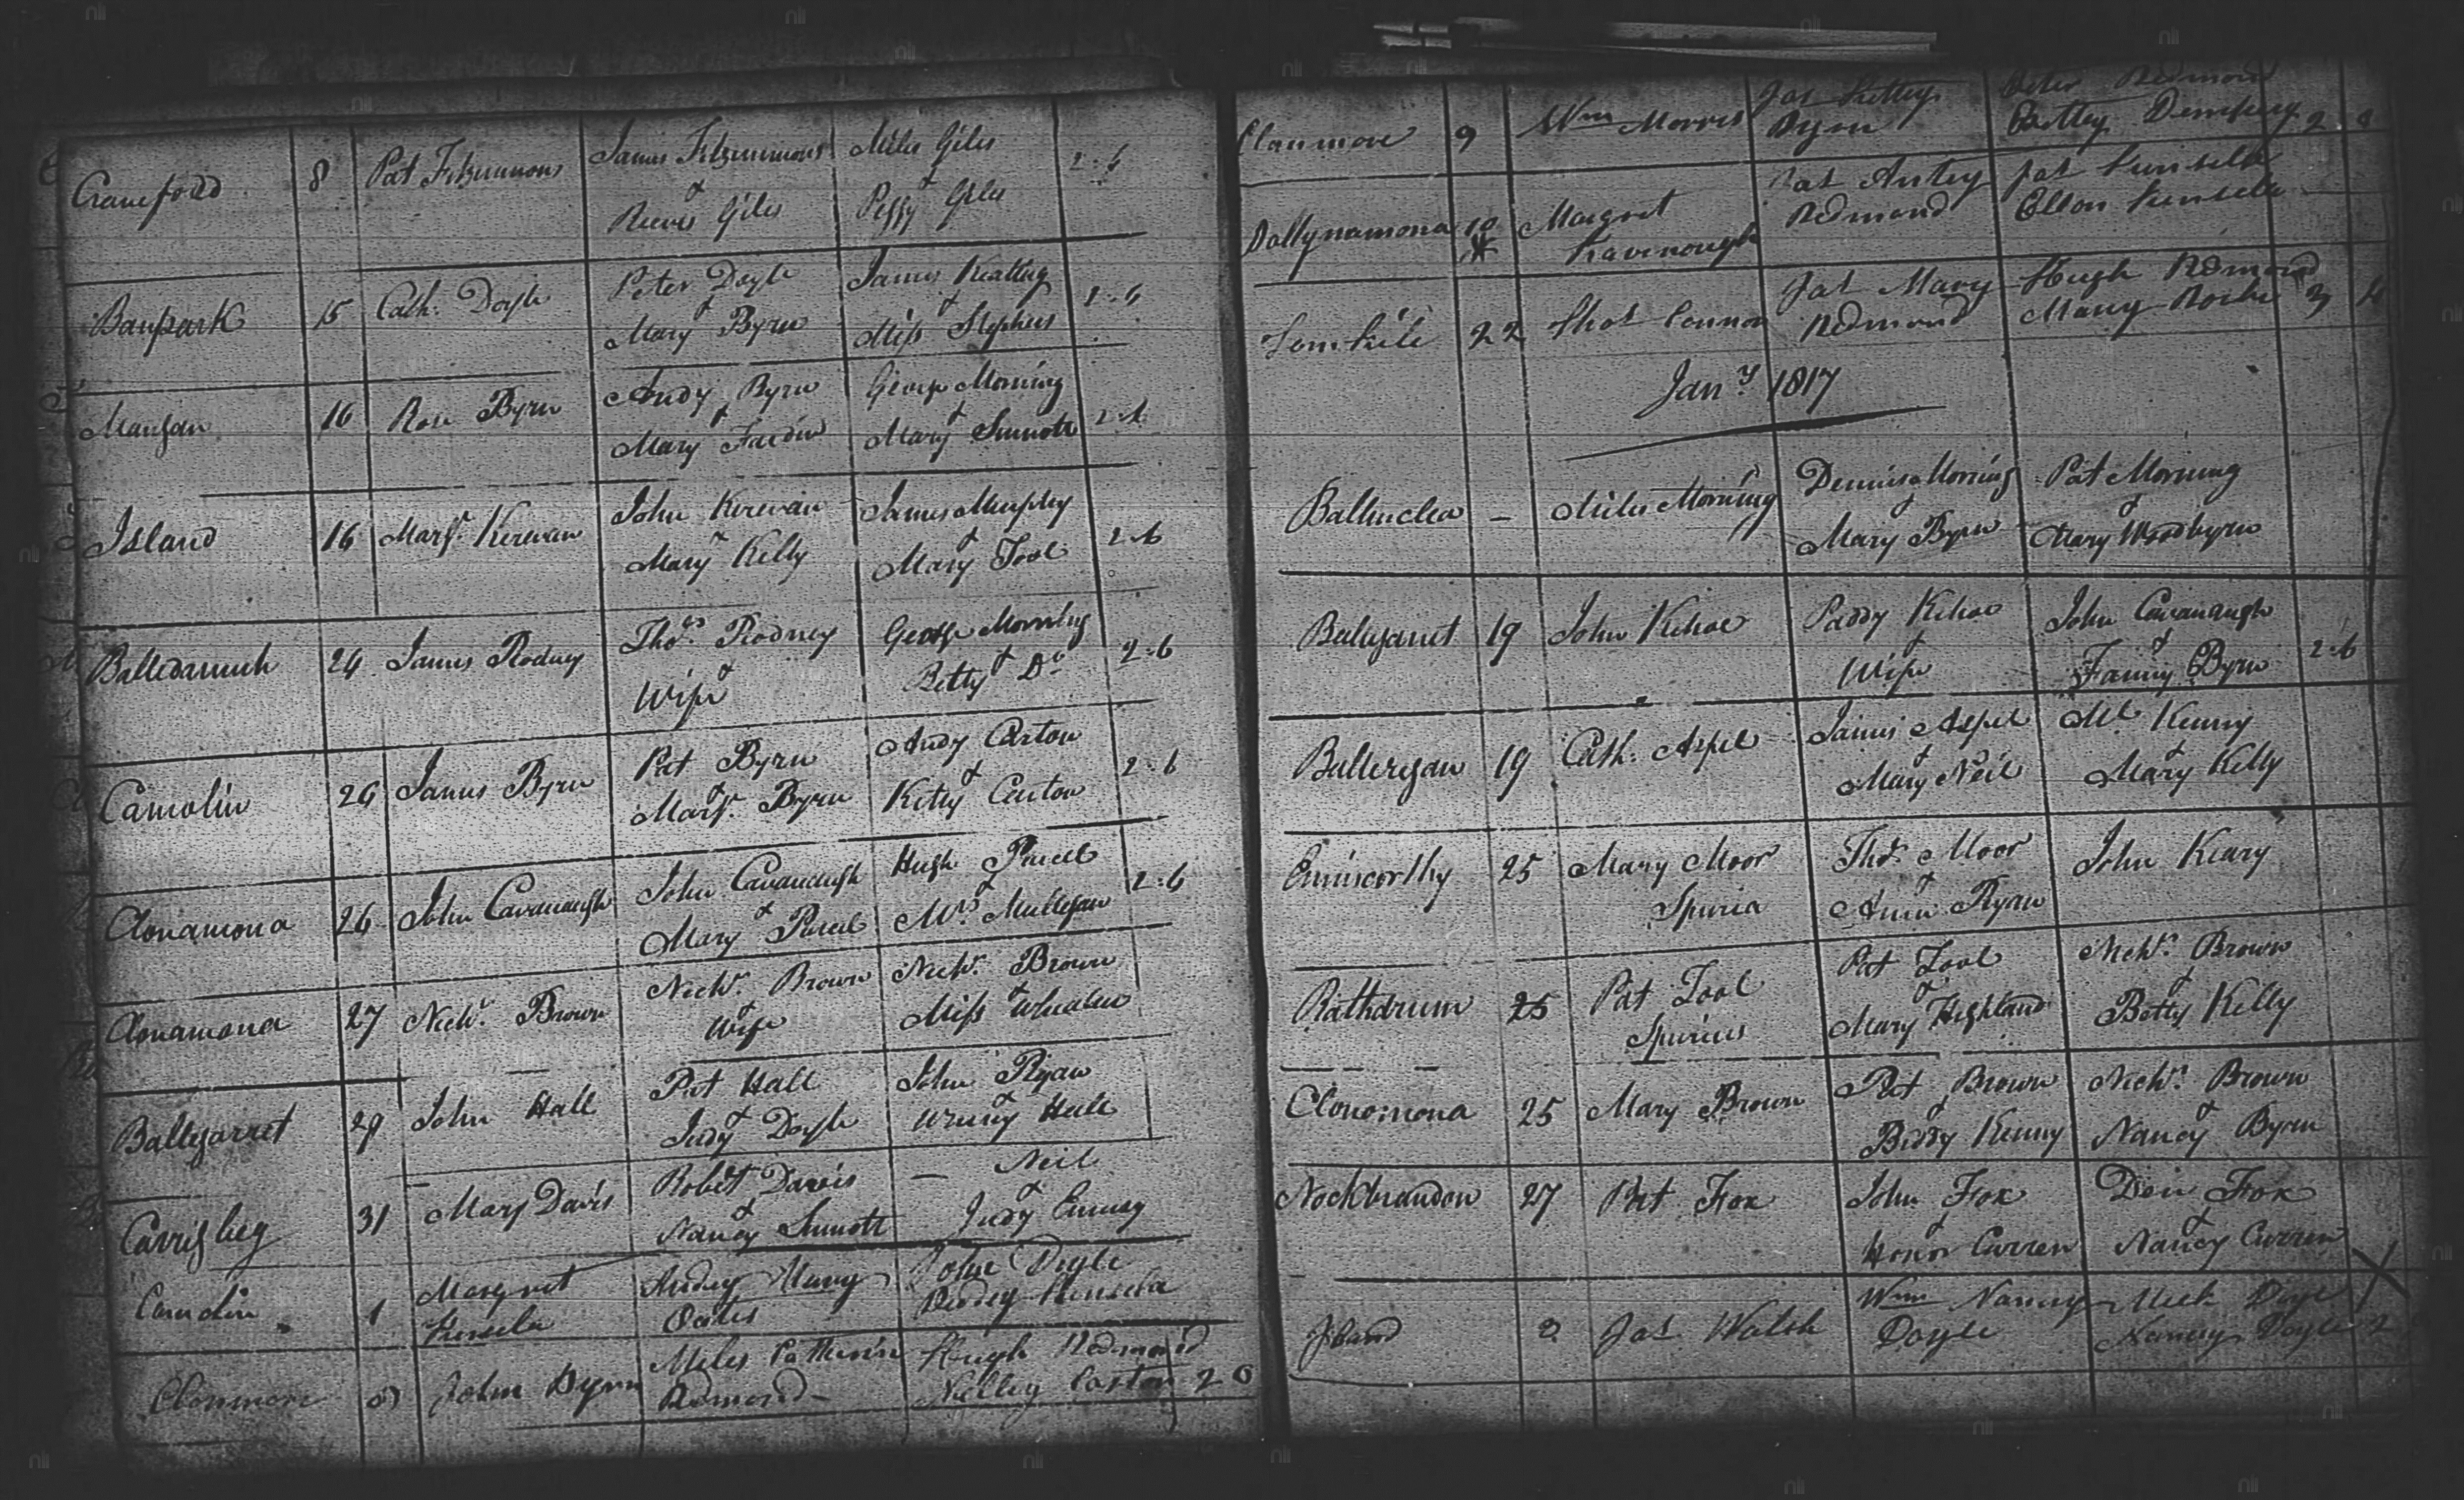 Craneford 8 Pat Fitzsimmons James Fitzsimmons & Reeves Giles Miles Giles & Peggy Giles 2-6
Banpark 15 Cath. Doyle Peter Doyle & Mary Byrn James Keating & Miss Stephens 2-6
Mangan 16 Rose Byrn Andy Byrn & Mary George Morning & Mary Sinnott 2-6
Island 16 Margt. Kirwan John Kirwan & Mary Kelly James Murphy & Mary Tool 2-6
24 James Rodney Thos. Rodney & Wife George Morning & Betty Do. 2-6
Camolin 24 James Byrn Pat Byrn & Margt. Byrn Andy Carton & Kitty Carton 2-6
Clonamona 26 John Cavanaugh John Cavanaugh & Mary Purcel Hugh Purcell & Mrs. Mullegan 2-6
Clonamona 27 Nichs. Brown Nichs. Brown & Wife Nichs. Brown & Miss Whealen
Ballygarret 29 John Hall Pat Hall & Judy Doyle John Ryan & Winny Hall
Carrigbeg 31 Mary Davis Robert Davis & Nancy Sinnott — Neil & Judy
Camolin 1 Margret Kinsela Andey Mary Oates John Doyle Biddey Kinsela
Clonmore John Byrn Miles Catherin Redmond Hugh Redmond Nelley Carton 2 0
Clonmore 9 Wm Morris Jas Kittey Byrn Peter Redmond Bettey Dempsey 2
Ballynamona 10 Margret Kavenough Redmond Jas Kinsela Ellon Kinsela
22 Thos Connor Jas Mary Redmond Hugh Redmond Mary Roche 3
Jany 1817
Balluclea — Miles Morning Dennis Morning & Mary Byrn Pat Morning & Mary Woodbyrn
Balygarret 19 John Kehoe Paddy Kehoe & Wife John Cavanaugh & Fanny Byrn 2-6
Balleregan 19 Cath. Aspel James Aspel & Mary Neil Ml. Kenny & Mary Kelly
Enniscorthy 25 Mary Moor Spuria Thos. Moor & Ann Ryan John Keary
Rathdrum 25 Pat Tool Spurius Pat Tool & Mary Highland Nichs. Brown & Betty Kelly
Clonomona 25 Mary Brown Pat Brown & Biddy Kenny Nichs. Brown & Nancy Byrn
Nockbrandon 27 Pat Fox John Fox & Honor Curren Den Fox & Nancy Curren
Island 2 Jas. Walsh Wm Nancy Doyle Mick Doyle Nancy Doyle 2